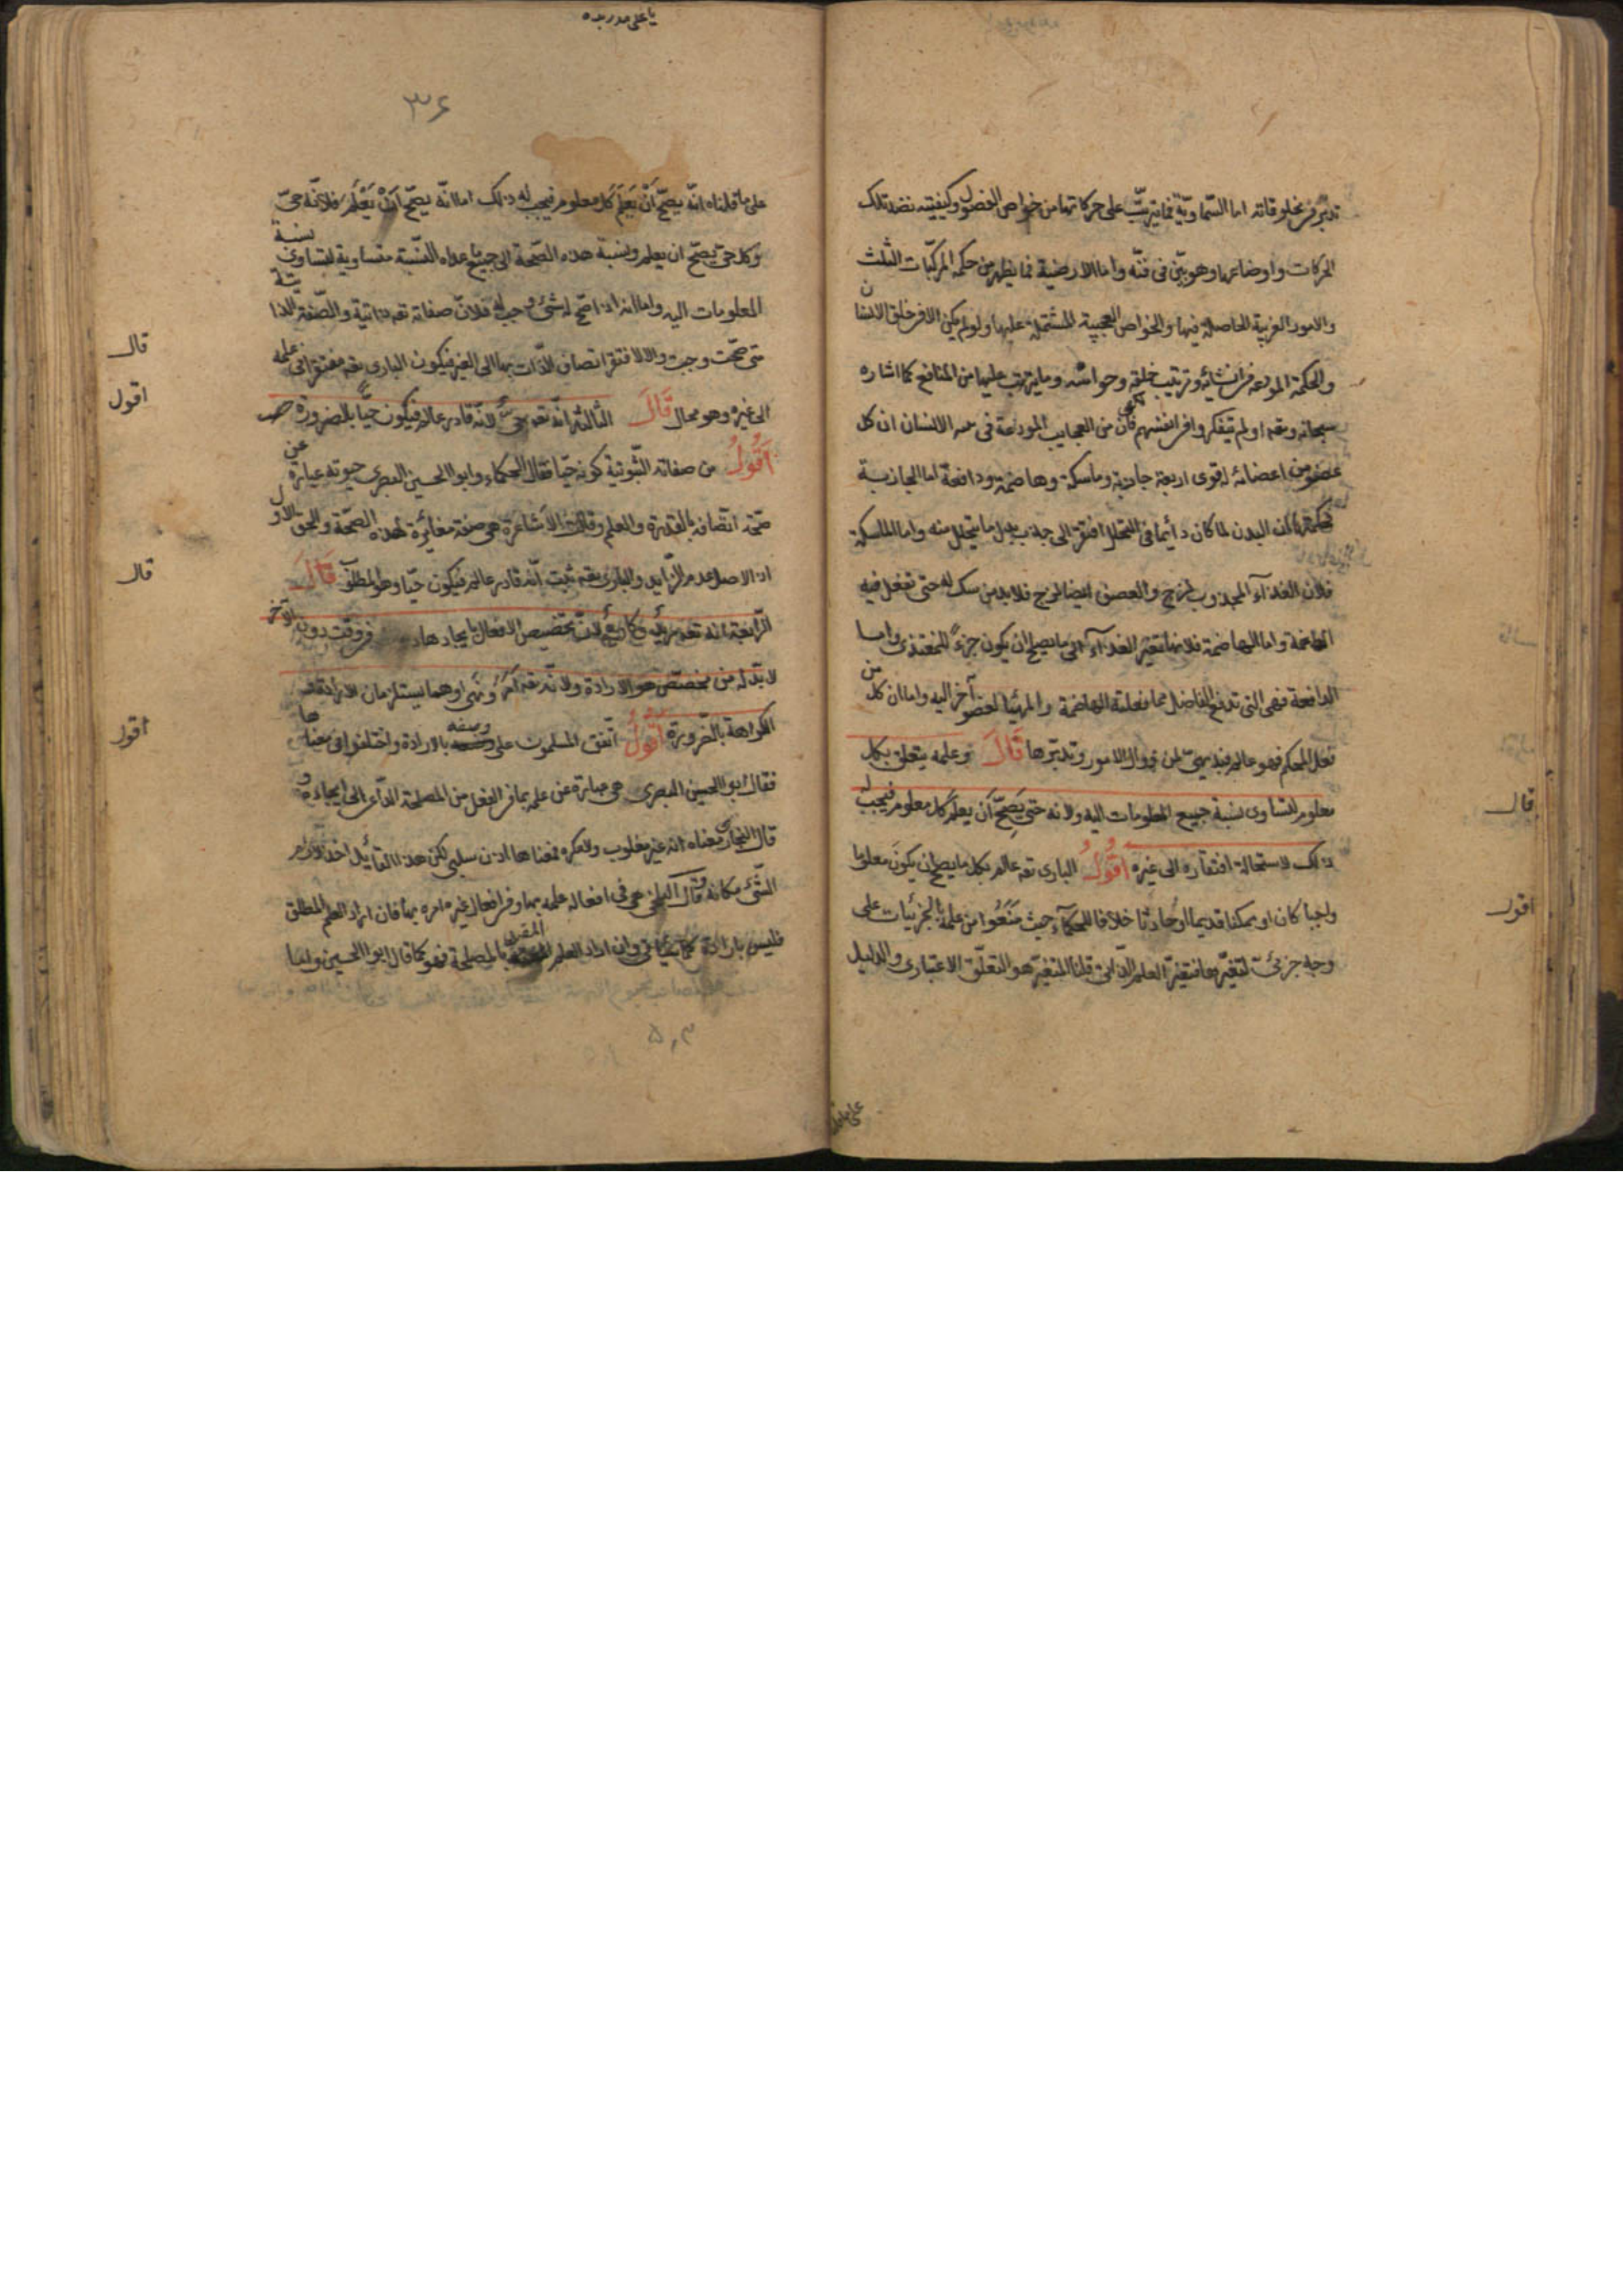 تدبر فى مخلوقاته اما السّماويّة فما يترتّب على حركاتها من خواص الفصول وكيفيّته نضد تلك
الحركات واوضاعها وهو مبيّن فى فنّه واما الارضية فما يظهر من حكمة المركّبات الثلث
والامور الغريبة الحاصلة فيها والخواص العجيبة المشتملة عليها ولو لم يكن الا فى خلق الانسان
والحكمة المودعة فى انشائه وترتيب خلقه وحواسّه وما يترتب عليها من المنافع كما اشار
سبحانه وتعه اولم يتفكروا فى انفسهم فان من العجايب المودعة فى الانسان ان كل
عضو من اعضائه له قوى اربعة جاذبة وماسكة وهاضمة ودافعة اما الجاذبة
فحكمتها ان البدن لما كان دائما فى التحلل افتقر الى جاذب بدل ما يتحلل منه واما الماسكة
فلان الغذاء المجذوب لزج والعضو ايضا لزج فلا بد من ماسك له حتى تفعل فيه
الهاضمة واما الهاضمة فلانها تغيّر الغذاء الى ما يصلح ان يكون جزءً للمغتذى واما
الدافعة فهى التى تدفع الفاضل مما فعلته الهاضمة والمهيّئا لعضو آخر اليه واما ان كل من
فعل المحكم فهو عالم فبديهىّ لمن زوال الامور وتدبّرها قَالَ وعلمه يتعلق بكل
معلوم لتساوى نسبة جميع المعلومات اليه ولانه حى يَصِحّ اَن يعلم كل معلوم فيجب له
ذلك لاستحالة افتقاره الى غيره اَقُولُ البارى تعه عالم بكل ما يصح ان يكونَ معلوما
واجبا كان او ممكنا قديما او حادثا خلافا للحكمآء حيث مَنَعُوا من علمه بالجزئيات على
وجه جزئى لتغيّرها فتغيّر العلم الذاتى قلنا المتغيّر هو التعلّق الاعتبارى والدليل
قال
اقول
٣٦
على ما قلناه انّه يصحّ اَنْ يَعلَم كل معلوم فيجب له ذلك اما انّه يصحّ اَنْ يَعْلَمَ فلانّه حىّ
وكل حىّ يصحّ ان يعلم ونسبة هذه الصّحة الى جميع ما عداه النّسبة متساوية لتساوى نسبة
المعلومات اليه واما انه اذا صحّ له شئ وجب له فلانّ صفاته تعه ذاتية والصّفة الذاتيّة
متى صحّت وجبت والا لافتقر اتصاف الذّات بها الى الغير فيكون البارى تعه مفتقرا فى علمه
الى غيره وهو محال قَالَ الثالثة انّه تعه حىّ لانّه قادر عالم فيكون حيًّا بالضرورة
اَقُولُ من صفاته الثّبوتية كونه حيّا فقال الحكماء وابو الحسين البصرى حيوته عبارة عن
صحّة اتّصافه بالقدرة والعلم وقالت الاَشاعرة هى صفة مغائرة لهذه الصّحة والحق الاوّل
اذ الاصل عدم الزّايد والبارى تعه ثبت انّه قادر عالم فيكون حيّا وهو المطلوب قَالَ
الرّابعة انه تعه مريد وكاره لانّ تخصيص الافعال بايجادها فى وقت دون آخر
لا بدّ له من مخصّص هو الارادة ولانّه تعه اَمَرَ ونَهى وهما يستلزمان الارادة و
الكراهة بالضّرورة اَقُولُ اتّفق المسلمون على وصفه بالارادة واختلفوا فى معناها
فقال ابو الحسين البصرى هى عبارة عن علمه بما فى الفعل من المصلحة الدّاعى الى ايجاده و
قال النجارى معناه انه غير مغلوب ولا مكره فمعناها اذن سلبى لكن هذا القائيل اخذ لازم
الشّئ مكانه وقال البلخى هى فى افعاله علمه بها وفى افعال غيره امره بها فان اراد العلم المطلق
فليس بارادة كما سيأتى وان اراد العلم المقيّد بالمصلحة فهو كما قال ابو الحسين واما
قال
اقول
قال
اقول